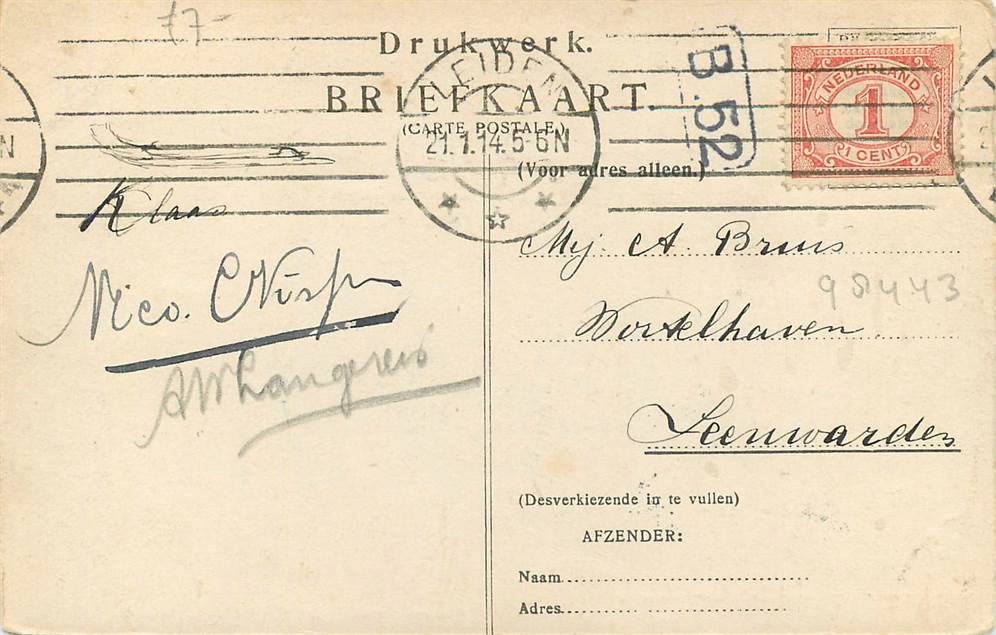 77-
Drukwerk.
BRIEFKAART.
(CARTE POSTALE.)
(Voor adres alleen.)
LEIDEN
21.1.14.5-6N
B.52
NEDERLAND
1
1 CENT
N
Klaas
Nico. C Krisp
AWLangereis
Mej. A Bruus
98443
Wortelhaven
Leeuwarden
(Desverkiezende in te vullen)
AFZENDER:
Naam
Adres